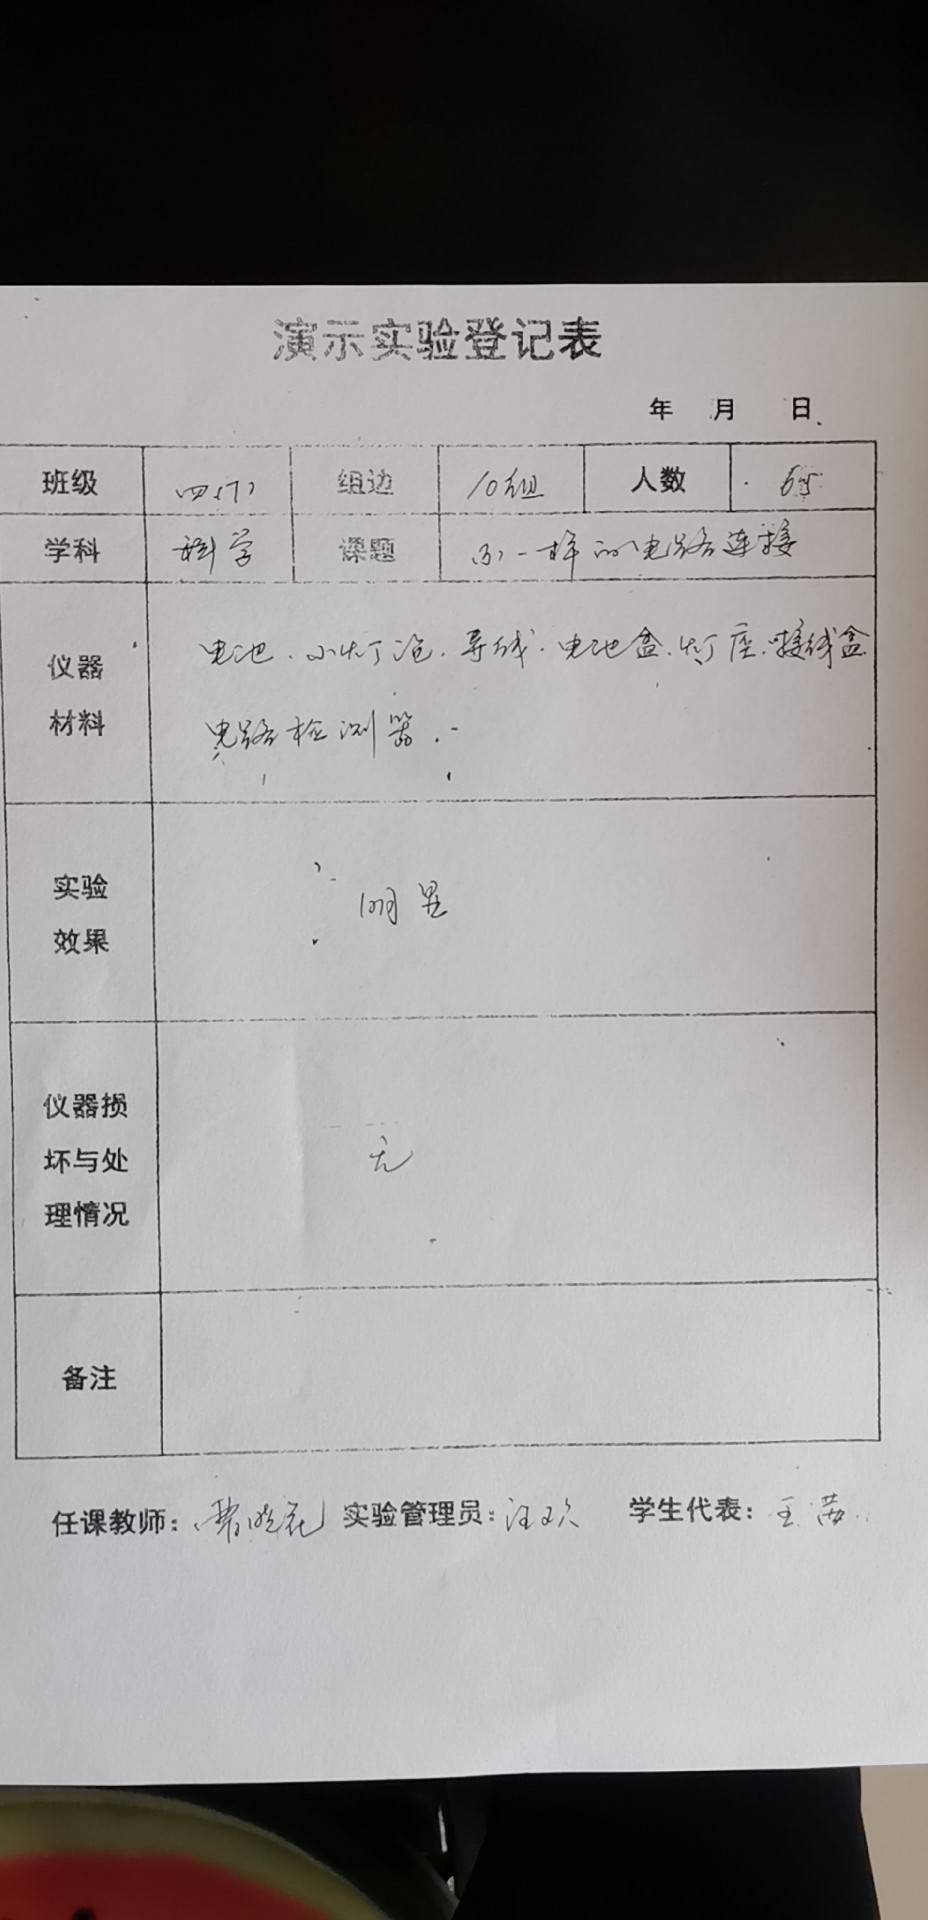 演示实验登记表
年 月 日
班级 四(7) 组边 10组 人数 65
学科 科学 课题 不一样的电路连接
仪器材料 电池.小灯泡.导线.电池盒.灯座.接线盒
电路检测器.
实验效果 明显
仪器损坏与处理情况 无
备注
任课教师: 实验管理员:汪欢 学生代表:王茜